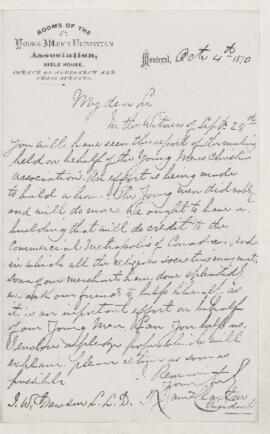 ROOMS OF THE
Young Men's Christian
Association,
BIBLE HOUSE,
CORNER OF ALEXANDER AND
CRAIG STREETS.
Montreal, Oct 4th 1870
My dear Sir
In the Witness of Sept. 28th
you will have seen the report of the meeting
held on behalf of the Young Mens Christian
Association. An effort is being made
to build a home. The Young men did nobly
and will do more. We ought to have a
building that will do credit to the
Commercial Metropolis of Canada. And
in which all the religious societies may meet
some of our merchants have done splendidly
we ask our friends to help liberally, as
it is an important effort on behalf
of our Young Men. Can you help us.
Enclosed pledge will
explain. please return as soon as
possible
I Remain
Yours
J. W. Dawson L.L.D.
President